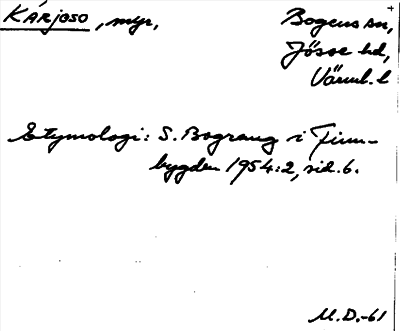 Kárjoso, myr,
Bogens sn,
Jösse hd,
Värml. l
Etymologi: S. Bograng i Finn-
bygden 1954:2, sid. 6.
M.D.-61